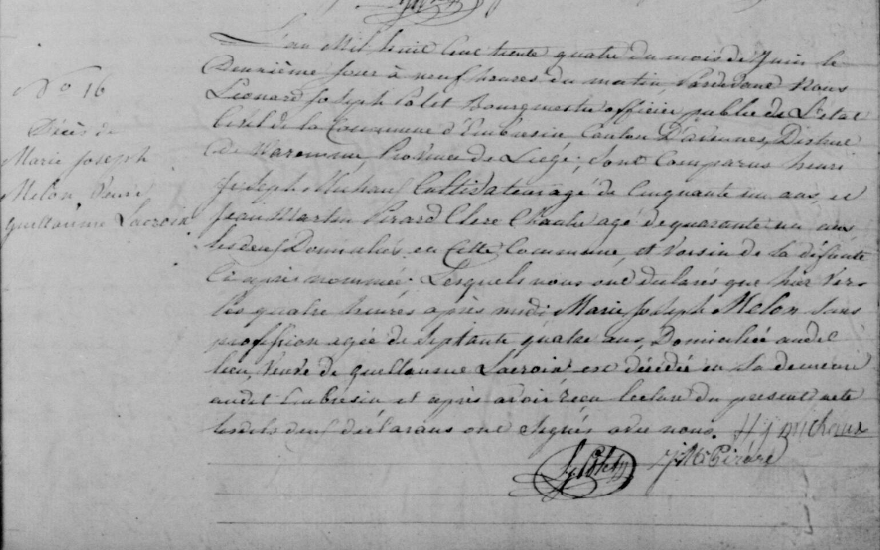 No 16
Décès de
Marie Joseph
Melon Veuve
guillaume Lacroix
L'an Mil huit Cent trente quatre du mois de Juin le
Deuxième jour à neuf heures du matin, Pardevant Nous
Léonard Joseph Polet Bourgmestre officier public de L'état
Civil de la Commune d'Embresin Canton D'avennes, District
de Waremme Province de Liége; sont Comparus henri
Joseph Michaux Cultivateur agé de Cinquante un ans, et
Jean Martin Pirard Clerc Chantre agé de quarante un ans
les deux Domiciliés en Cette Commune, et Voisin de la défunte
Ci après nommée; Lesquels nous ont déclarés que hier Vers
les quatre heures après midi, Marie Joseph Melon Sans
proffession agée de Septante quatre ans, Domiciliée audit
lieu, Veuve de guillaume Lacroix est décédée en Sa demeure
audit Embresin et après avoir reçu lecture du present acte
lesdits deux déclarans ont Signés avec nous. H J michaux
J M Pirard
L J Polet